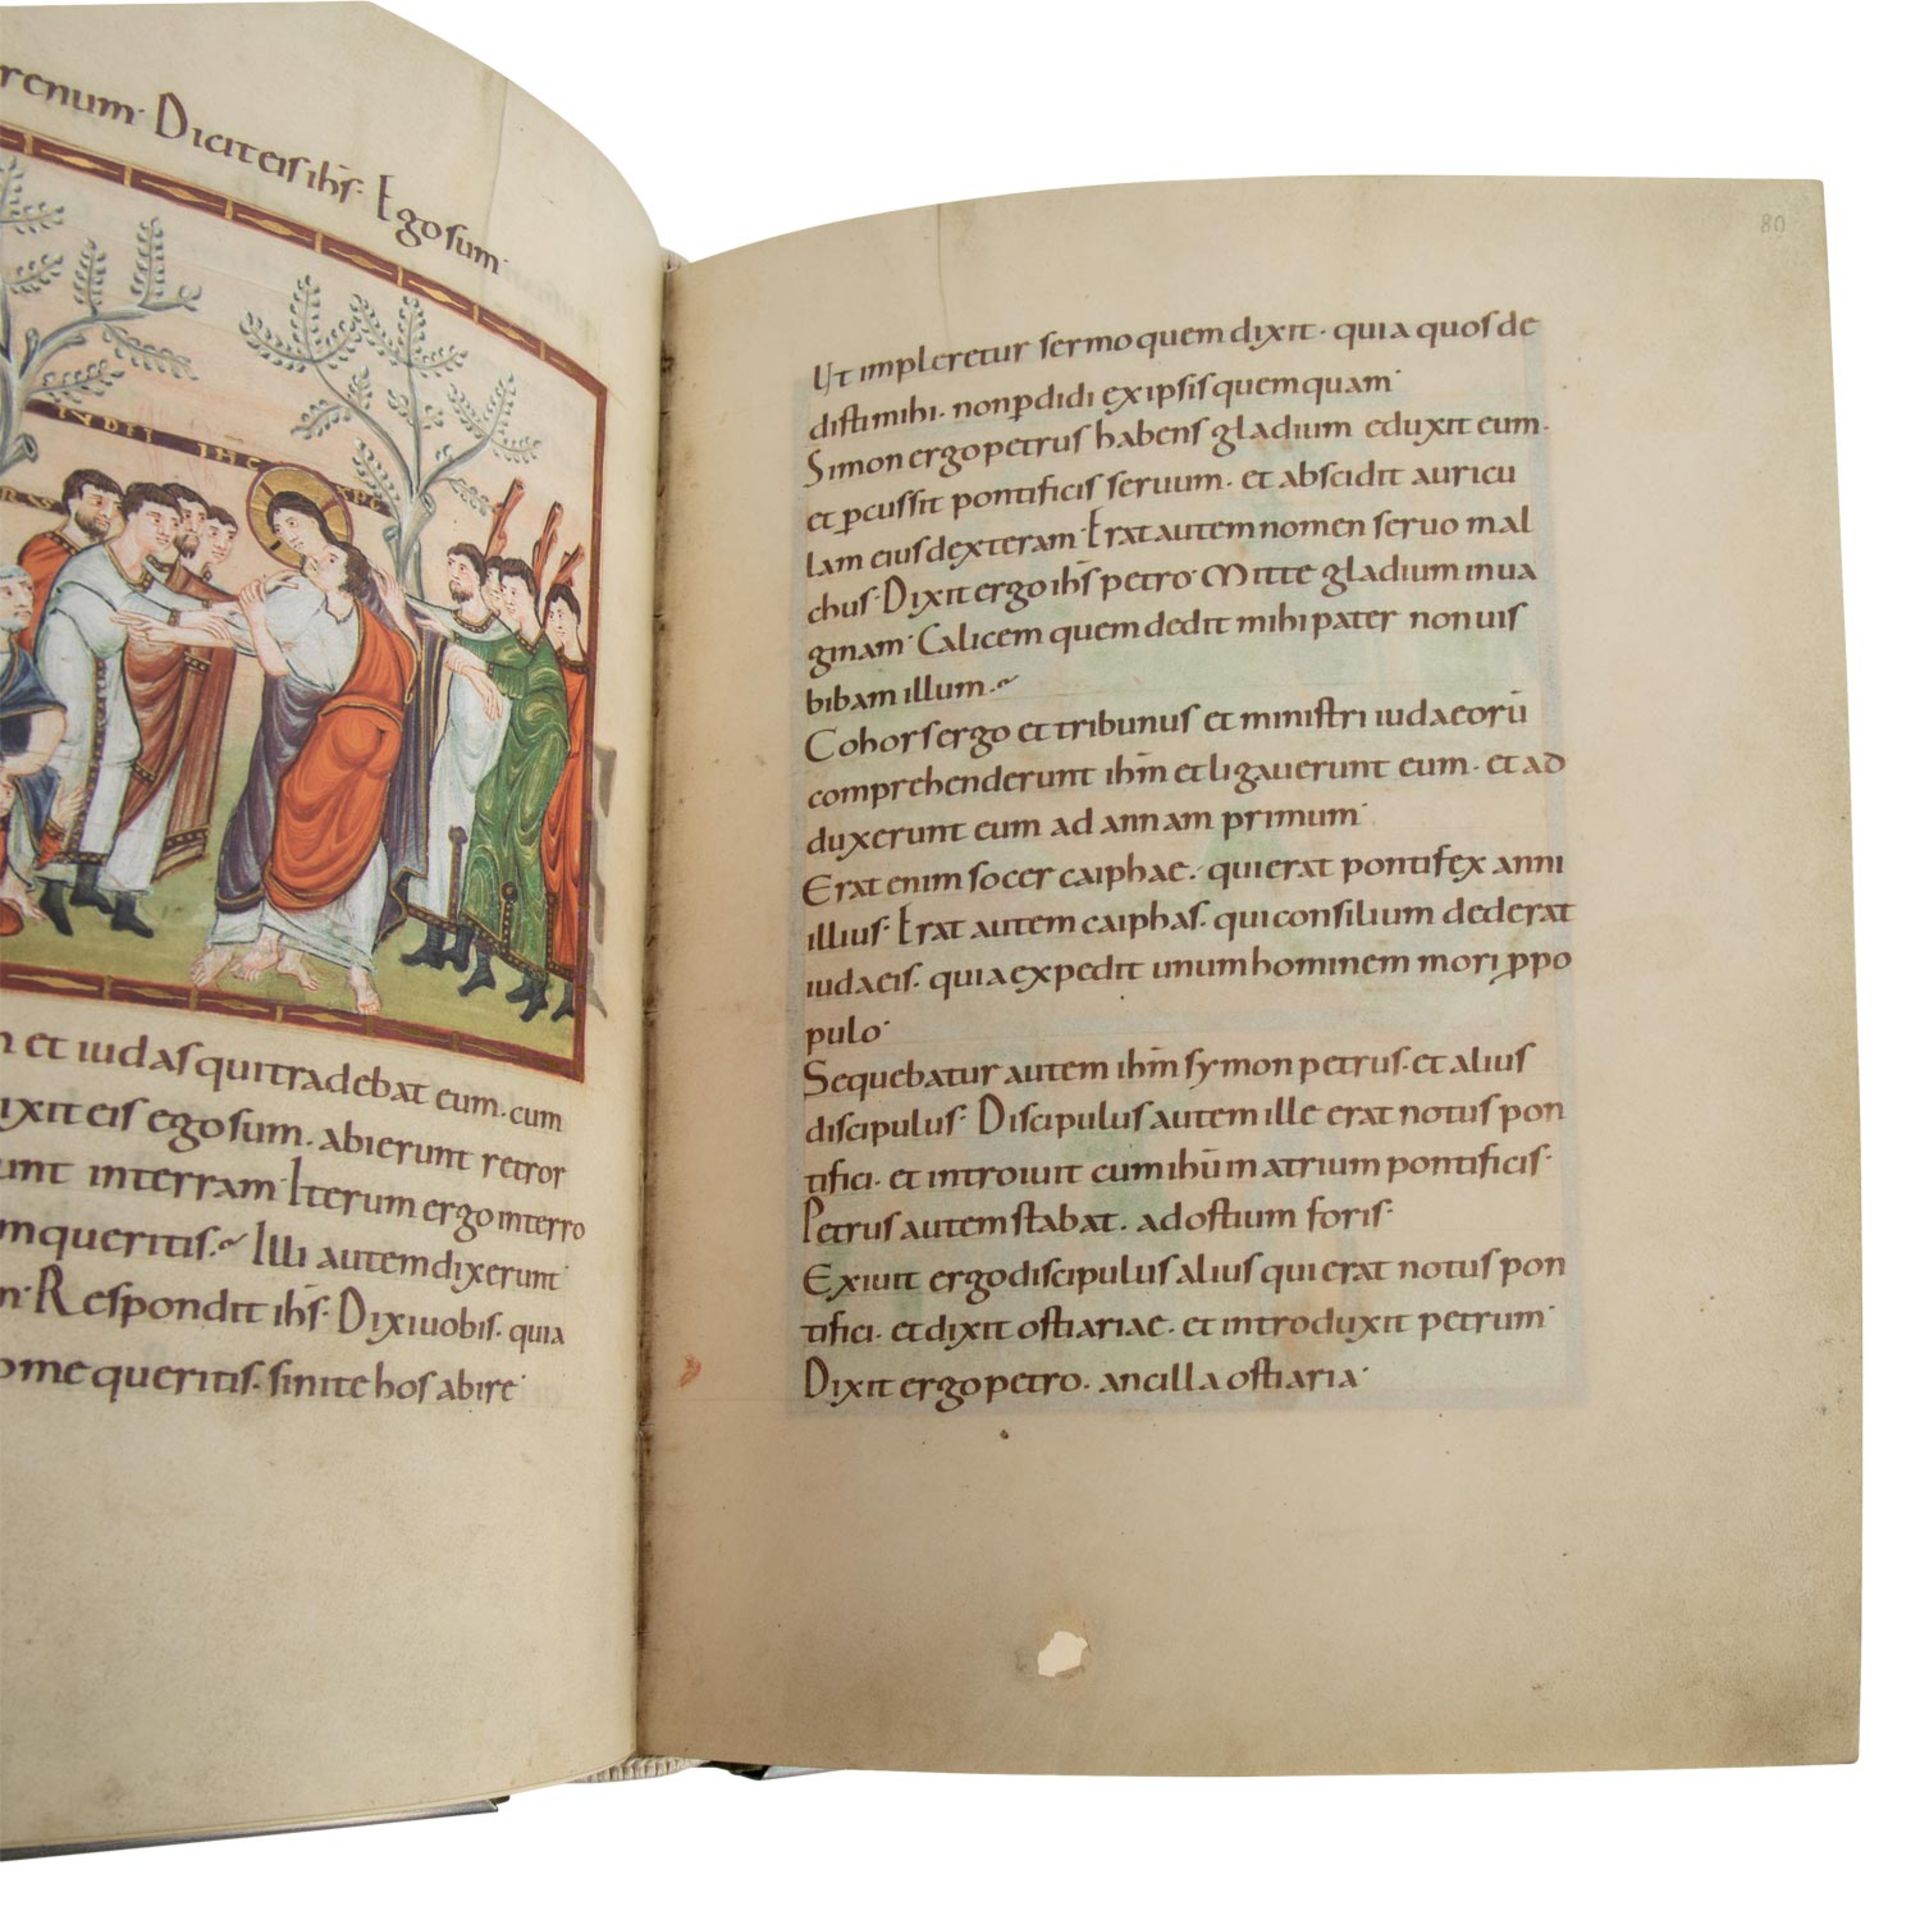 renum· Dicit eis ih̄s· Ego sum·
IVDEI IHC XPC
n et iudas qui tradebat eum· cum
ixit eis ego sum· abierunt retror
unt in terram· Iterum ergo interro
m queritis· Illi autem dixerunt·
n· Respondit ih̄s· Dixi uobis· quia
o me queritis· sinite hos abire·
80
Ut impleretur sermo quem dixit· quia quos de
disti mihi· non ꝑdidi ex ipsis quemquam·
Simon ergo petrus habens gladium eduxit eum·
et ꝑcussit pontificis seruum· et abscidit auricu
lam eius dexteram· Erat autem nomen seruo mal
chus· Dixit ergo ih̄s petro· Mitte gladium in ua
ginam· Calicem quem dedit mihi pater non uis
bibam illum·
Cohors ergo et tribunus et ministri iudaeorū
comprehenderunt ih̄m et ligauerunt eum· et ad
duxerunt eum ad annam primum·
Erat enim socer caiphae· qui erat pontifex anni
illius· Erat autem caiphas· qui consilium dederat
iudaeis· quia expedit unum hominem mori ꝓ po
pulo·
Sequebatur autem ih̄m symon petrus· et alius
discipulus· Discipulus autem ille erat notus pon
tifici· et introiuit cum ihū in atrium pontificis·
Petrus autem stabat· ad ostium foris·
Exiuit ergo discipulus alius qui erat notus pon
tifici· et dixit ostiariae· et introduxit petrum·
Dixit ergo petro· ancilla ostiaria·